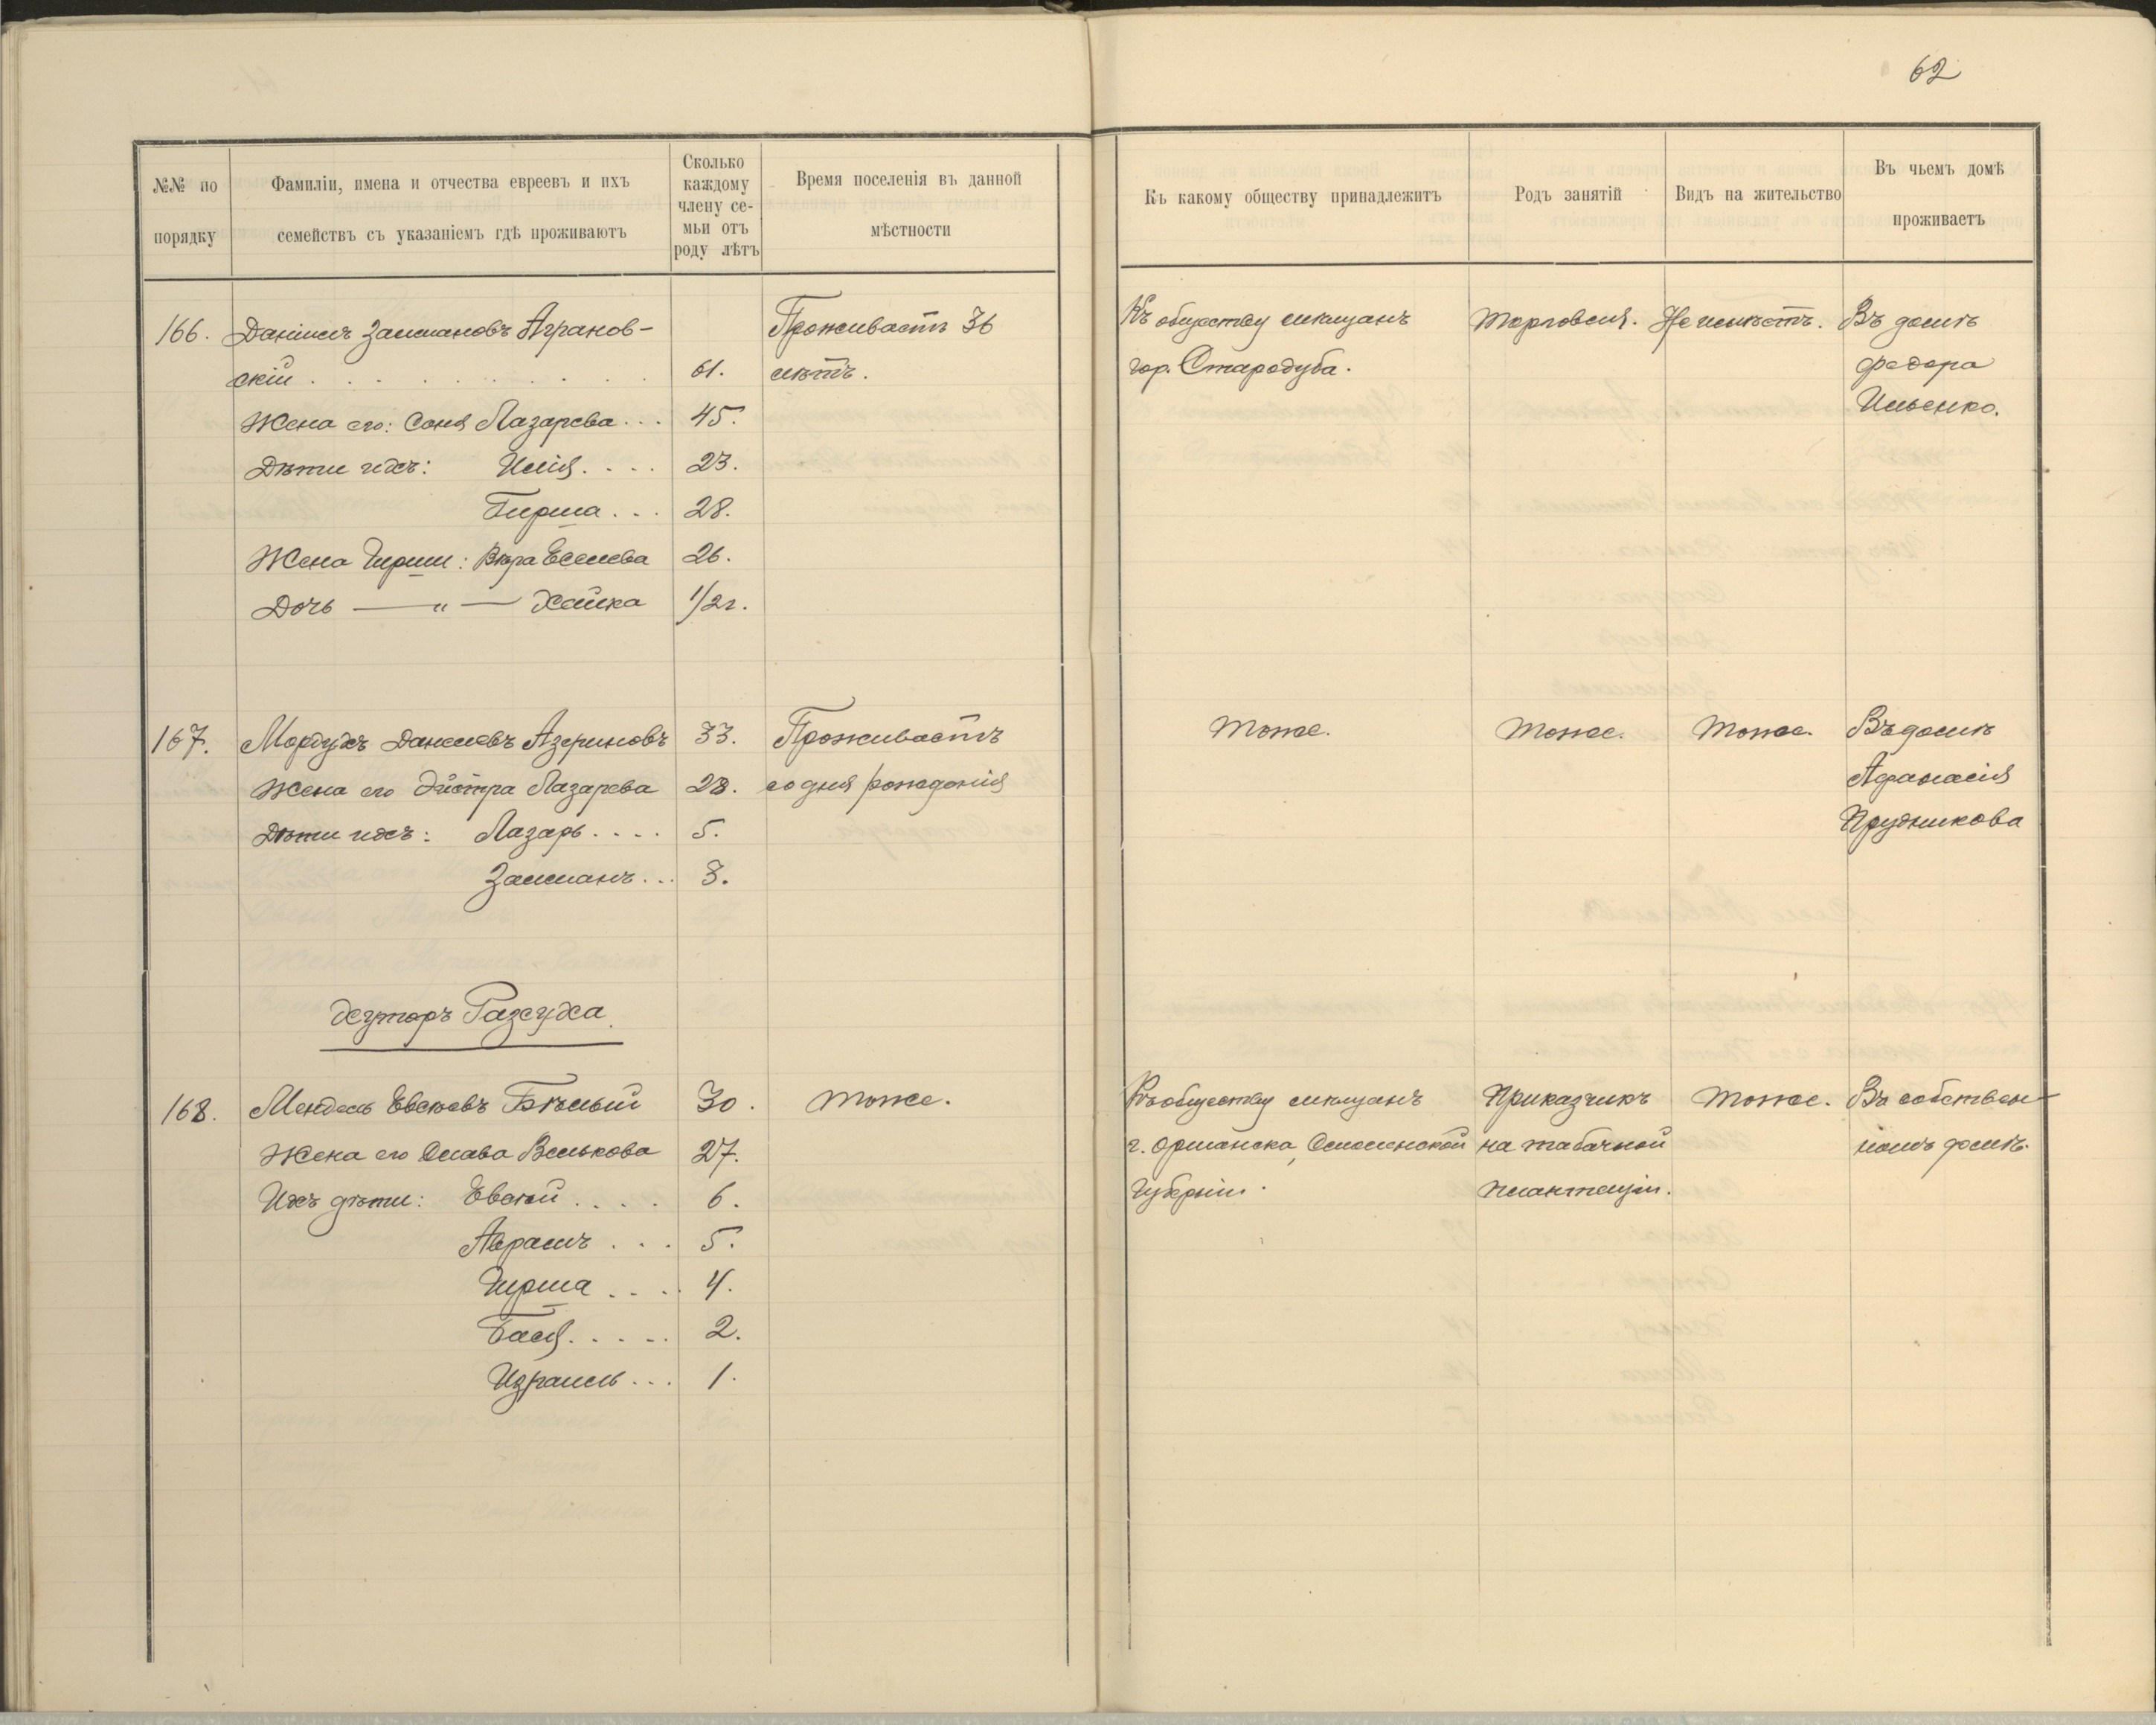 62
№№ по
порядку
Фамиліи, имена и отчества евреевъ и ихъ
семействъ съ указаніемъ гдѣ проживаютъ
Сколько
каждому
члену се-
мьи отъ
роду лѣтъ
Время поселенія въ данной
мѣстности
Къ какому обществу принадлежитъ
Родъ занятій
Видъ на жительство
Въ чьемъ домѣ
проживаетъ
166. Даніилъ Залмановъ Агранов- Проживаетъ 36 Къ обществу мѣщанъ Торговля. Не имѣетъ. Въ домѣ
скій . . . . . . . . . 61. лѣтъ. гор. Стародуба. Федора
Жена его: Соня Лазарева . . . 45. Ильенко.
Дѣти ихъ: Илія . . . . 23.
Гирша . . . 28.
Жена Гирши: Вѣра Еселева 26.
Дочь — „ — Хайка 1/2 г.
167. Мордухъ Данелевъ Азериновъ 33. Проживаетъ Тоже. Тоже. Тоже. Въ домѣ
Жена его Эйстра Лазарева 28. со дня рожденія Афанасія
Дѣти ихъ: Лазарь . . . . 5. Прудникова
Залманъ . . . 3.
Хуторъ Разсуха
168. Мендель Евсѣевъ Бѣлый 30. Тоже. Къ обществу мѣщанъ Приказчикъ Тоже. Въ собствен-
Жена его Слава Велькова 27. г. Оршанска, Смоленской на табачной номъ домѣ.
Ихъ дѣти: Евсѣй . . . . 6. Губерніи. плантаціи.
Абрамъ . . . 5.
Гирша . . . . 4.
Бася . . . . . 2.
Израиль . . . 1.